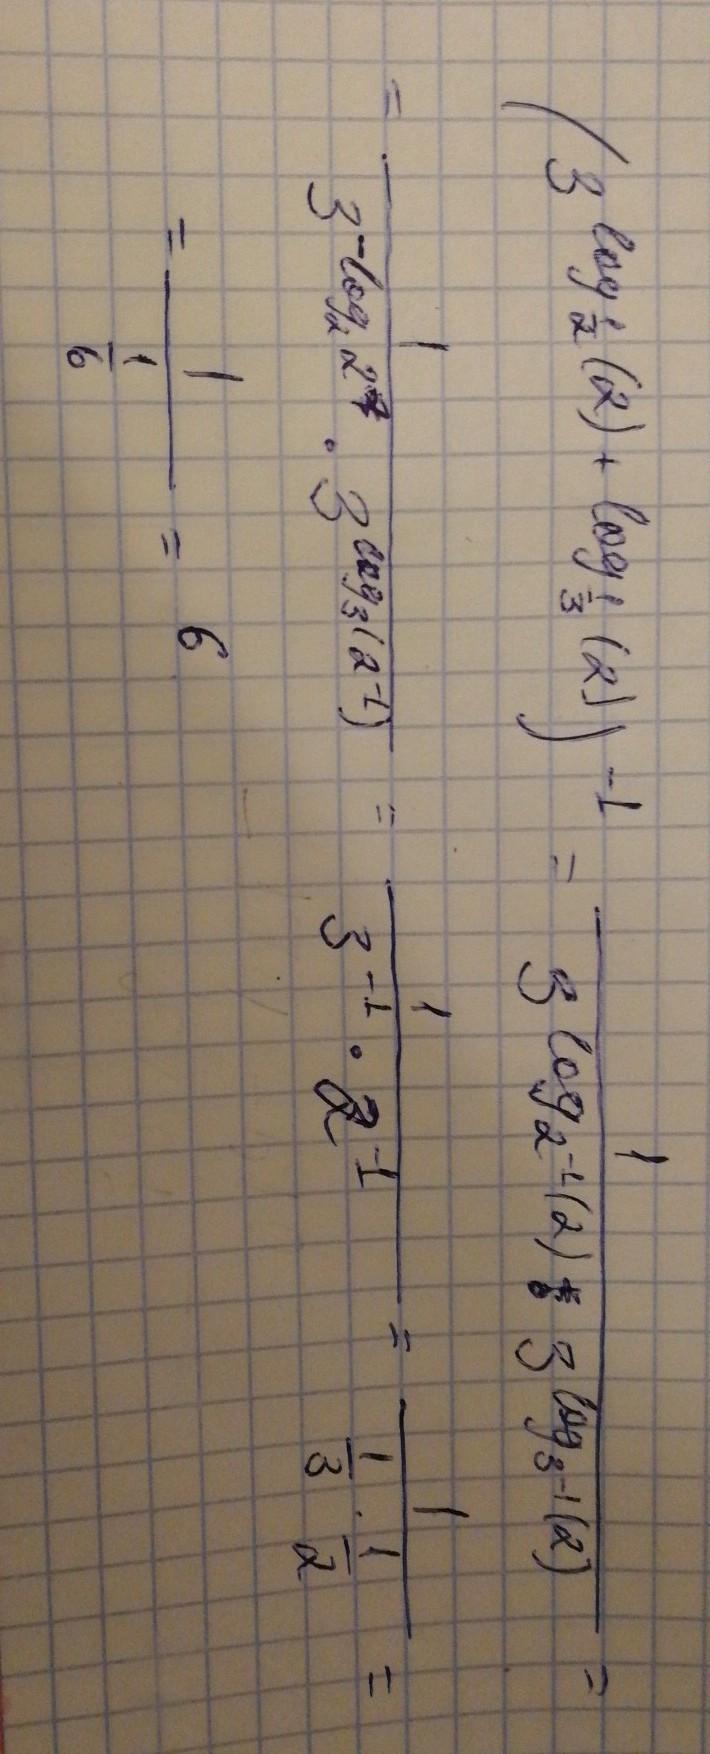 (3^{log_{1/2}(2) + log_{1/3}(2)})^{-1} = 1 / (3^{log_{2^{-1}}(2)} · 3^{log_{3^{-1}}(2)}) =
= 1 / (3^{-log_2 2} · 3^{log_3(2^{-1})}) = 1 / (3^{-1} · 2^{-1}) = 1 / (1/3 · 1/2) =
= 1 / (1/6) = 6